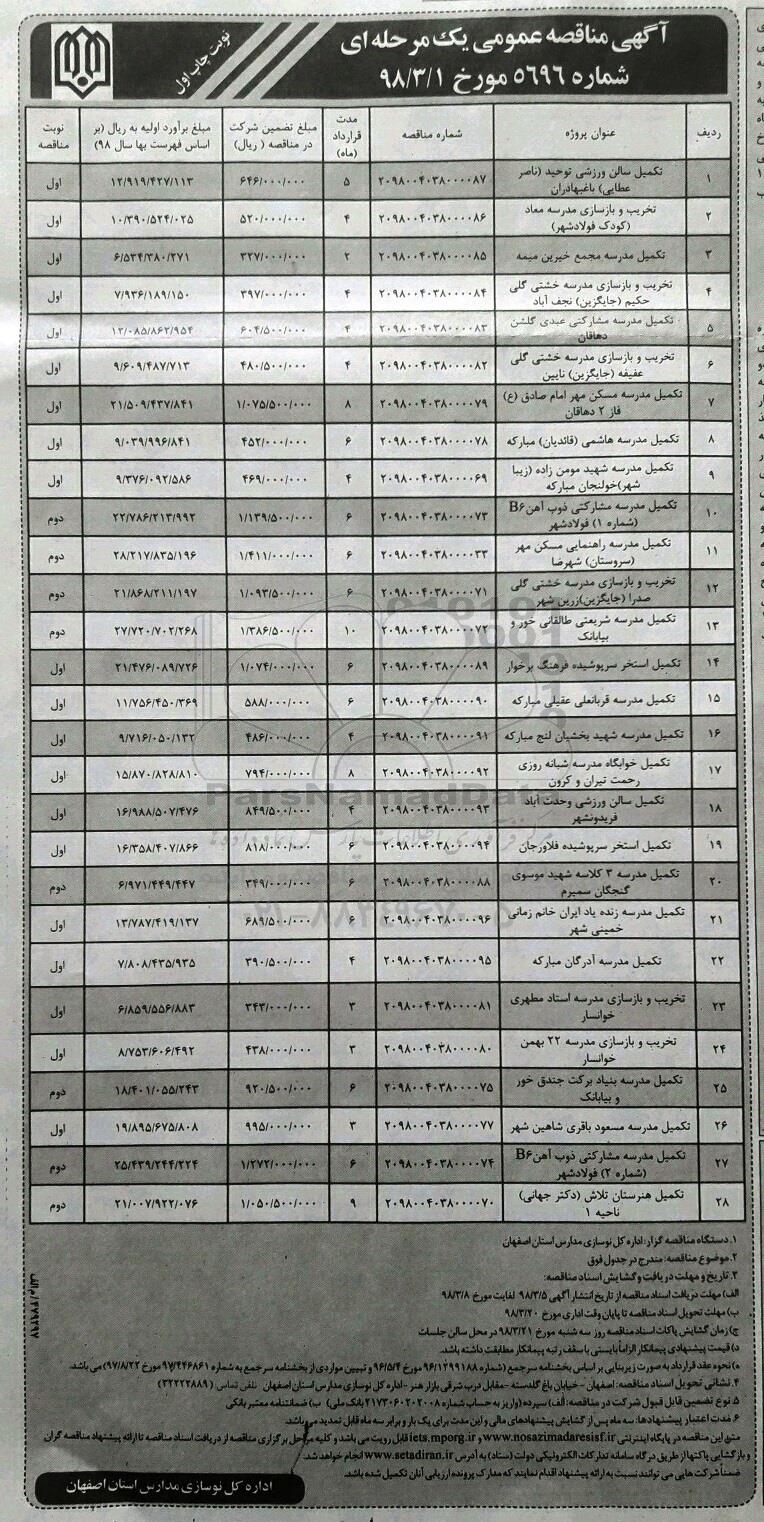 آگهی مناقصه عمومی یک مرحله ای
شماره ۵۶۹۶ مورخ ۹۸/۳/۱
نوبت چاپ اول
ردیف عنوان پروژه شماره مناقصه مدت قرارداد (ماه) مبلغ تضمین شرکت در مناقصه ( ریال) مبلغ برآورد اولیه به ریال (بر اساس فهرست بها سال ۹۸) نوبت مناقصه
۱ تکمیل سالن ورزشی توحید (ناصر عطایی) باغبهادران ۲۰۹۸۰۰۴۰۳۸۰۰۰۰۸۷ ۵ ۶۴۶/۰۰۰/۰۰۰ ۱۲/۹۱۹/۴۲۷/۱۱۳ اول
۲ تخریب و بازسازی مدرسه معاد (کودک فولادشهر) ۲۰۹۸۰۰۴۰۳۸۰۰۰۰۸۶ ۴ ۵۲۰/۰۰۰/۰۰۰ ۱۰/۳۹۰/۵۲۴/۰۲۵ اول
۳ تکمیل مدرسه مجمع خیرین میمه ۲۰۹۸۰۰۴۰۳۸۰۰۰۰۸۵ ۲ ۳۲۷/۰۰۰/۰۰۰ ۶/۵۳۴/۳۸۰/۲۷۱ اول
۴ تخریب و بازسازی مدرسه خشتی گلی حکیم (جایگزین) نجف آباد ۲۰۹۸۰۰۴۰۳۸۰۰۰۰۸۴ ۴ ۳۹۷/۰۰۰/۰۰۰ ۷/۹۳۶/۱۸۹/۱۵۰ اول
۵ تکمیل مدرسه مشارکتی عبدی گلشن دهاقان ۲۰۹۸۰۰۴۰۳۸۰۰۰۰۸۳ ۴ ۶۰۴/۵۰۰/۰۰۰ ۱۲/۰۸۵/۸۶۲/۹۵۴ اول
۶ تخریب و بازسازی مدرسه خشتی گلی عفیفه (جایگزین) نایین ۲۰۹۸۰۰۴۰۳۸۰۰۰۰۸۲ ۴ ۴۸۰/۵۰۰/۰۰۰ ۹/۶۰۹/۴۸۷/۷۱۳ اول
۷ تکمیل مدرسه مسکن مهر امام صادق (ع) فاز ۲ دهاقان ۲۰۹۸۰۰۴۰۳۸۰۰۰۰۷۹ ۸ ۱/۰۷۵/۵۰۰/۰۰۰ ۲۱/۵۰۹/۴۳۷/۸۴۱ اول
۸ تکمیل مدرسه هاشمی (قائدیان) مبارکه ۲۰۹۸۰۰۴۰۳۸۰۰۰۰۷۸ ۶ ۴۵۲/۰۰۰/۰۰۰ ۹/۰۳۹/۹۹۶/۸۴۱ اول
۹ تکمیل مدرسه شهید مومن زاده (زیبا شهر)خولنجان مبارکه ۲۰۹۸۰۰۴۰۳۸۰۰۰۰۶۹ ۴ ۴۶۹/۰۰۰/۰۰۰ ۹/۳۷۶/۰۹۲/۵۸۶ اول
۱۰ تکمیل مدرسه مشارکتی ذوب آهن B۶ (شماره ۱) فولادشهر ۲۰۹۸۰۰۴۰۳۸۰۰۰۰۷۳ ۶ ۱/۱۳۹/۵۰۰/۰۰۰ ۲۲/۷۸۶/۲۱۳/۹۹۲ دوم
۱۱ تکمیل مدرسه راهنمایی مسکن مهر (سروستان) شهرضا ۲۰۹۸۰۰۴۰۳۸۰۰۰۰۳۳ ۶ ۱/۴۱۱/۰۰۰/۰۰۰ ۲۸/۲۱۷/۸۳۵/۱۹۶ دوم
۱۲ تخریب و بازسازی مدرسه خشتی گلی صدرا (جایگزین)زرین شهر ۲۰۹۸۰۰۴۰۳۸۰۰۰۰۷۱ ۶ ۱/۰۹۳/۵۰۰/۰۰۰ ۲۱/۸۶۸/۲۱۱/۱۹۷ دوم
۱۳ تکمیل مدرسه شریعتی طالقانی خور و بیابانک ۲۰۹۸۰۰۴۰۳۸۰۰۰۰۷۲ ۱۰ ۱/۳۸۶/۵۰۰/۰۰۰ ۲۷/۷۲۰/۷۰۲/۲۶۸ دوم
۱۴ تکمیل استخر سرپوشیده فرهنگ برخوار ۲۰۹۸۰۰۴۰۳۸۰۰۰۰۸۹ ۶ ۱/۰۷۴/۰۰۰/۰۰۰ ۲۱/۴۷۶/۰۸۹/۷۲۶ اول
۱۵ تکمیل مدرسه قربانعلی عقیلی مبارکه ۲۰۹۸۰۰۴۰۳۸۰۰۰۰۹۰ ۶ ۵۸۸/۰۰۰/۰۰۰ ۱۱/۷۵۶/۴۵۰/۳۶۹ اول
۱۶ تکمیل مدرسه شهید بخشیان لنج مبارکه ۲۰۹۸۰۰۴۰۳۸۰۰۰۰۹۱ ۴ ۴۸۶/۰۰۰/۰۰۰ ۹/۷۱۶/۰۵۰/۱۳۲ اول
۱۷ تکمیل خوابگاه مدرسه شبانه روزی رحمت تیران و کرون ۲۰۹۸۰۰۴۰۳۸۰۰۰۰۹۲ ۸ ۷۹۴/۰۰۰/۰۰۰ ۱۵/۸۷۰/۸۲۸/۸۱۰ اول
۱۸ تکمیل سالن ورزشی وحدت آباد فریدونشهر ۲۰۹۸۰۰۴۰۳۸۰۰۰۰۹۳ ۴ ۸۴۹/۵۰۰/۰۰۰ ۱۶/۹۸۸/۵۰۷/۴۷۶ اول
۱۹ تکمیل استخر سرپوشیده فلاورجان ۲۰۹۸۰۰۴۰۳۸۰۰۰۰۹۴ ۶ ۸۱۸/۰۰۰/۰۰۰ ۱۶/۳۵۸/۴۰۷/۸۶۶ اول
۲۰ تکمیل مدرسه ۳ کلاسه شهید موسوی گنجگان سمیرم ۲۰۹۸۰۰۴۰۳۸۰۰۰۰۸۸ ۶ ۳۴۹/۰۰۰/۰۰۰ ۶/۹۷۱/۴۴۹/۴۴۷ دوم
۲۱ تکمیل مدرسه زنده یاد ایران خانم زمانی خمینی شهر ۲۰۹۸۰۰۴۰۳۸۰۰۰۰۹۶ ۶ ۶۸۹/۵۰۰/۰۰۰ ۱۳/۷۸۷/۴۱۹/۱۳۷ اول
۲۲ تکمیل مدرسه آدرگان مبارکه ۲۰۹۸۰۰۴۰۳۸۰۰۰۰۹۵ ۴ ۳۹۰/۵۰۰/۰۰۰ ۷/۸۰۸/۴۳۵/۹۳۵ اول
۲۳ تخریب و بازسازی مدرسه استاد مطهری خوانسار ۲۰۹۸۰۰۴۰۳۸۰۰۰۰۸۱ ۳ ۳۴۳/۰۰۰/۰۰۰ ۶/۸۵۹/۵۵۶/۸۸۳ اول
۲۴ تخریب و بازسازی مدرسه ۲۲ بهمن خوانسار ۲۰۹۸۰۰۴۰۳۸۰۰۰۰۸۰ ۳ ۴۳۸/۰۰۰/۰۰۰ ۸/۷۵۳/۶۰۶/۴۹۲ اول
۲۵ تکمیل مدرسه بنیاد برکت جندق خور و بیابانک ۲۰۹۸۰۰۴۰۳۸۰۰۰۰۷۵ ۶ ۹۲۰/۵۰۰/۰۰۰ ۱۸/۴۰۱/۰۵۵/۲۴۳ دوم
۲۶ تکمیل مدرسه مسعود باقری شاهین شهر ۲۰۹۸۰۰۴۰۳۸۰۰۰۰۷۷ ۳ ۹۹۵/۰۰۰/۰۰۰ ۱۹/۸۹۵/۶۷۵/۸۰۸ اول
۲۷ تکمیل مدرسه مشارکتی ذوب آهن B۶ (شماره ۲) فولادشهر ۲۰۹۸۰۰۴۰۳۸۰۰۰۰۷۴ ۶ ۱/۲۷۲/۰۰۰/۰۰۰ ۲۵/۴۳۹/۲۴۴/۲۲۴ دوم
۲۸ تکمیل هنرستان تلاش (دکتر جهانی) ناحیه ۱ ۲۰۹۸۰۰۴۰۳۸۰۰۰۰۷۰ ۹ ۱/۰۵۰/۵۰۰/۰۰۰ ۲۱/۰۰۷/۹۲۲/۰۷۶ دوم
ParsNamadData
۰۲۱-۸۸۳۴۹۶۷۰-۵
۱. دستگاه مناقصه گزار: اداره کل نوسازی مدارس استان اصفهان
۲. موضوع مناقصه: مندرج در جدول فوق
۳. تاریخ و مهلت دریافت و گشایش اسناد مناقصه:
الف) مهلت دریافت اسناد مناقصه از تاریخ انتشار آگهی ۹۸/۳/۵ لغایت مورخ ۹۸/۳/۸
ب) مهلت تحویل اسناد مناقصه تا پایان وقت اداری مورخ ۹۸/۳/۲۰
ج) زمان گشایش پاکات اسناد مناقصه روز سه شنبه مورخ ۹۸/۳/۲۱ در محل سالن جلسات
د) قیمت پیشنهادی پیمانکار الزاماً بایستی با سقف رتبه پیمانکار مطابقت داشته باشد.
ه) نحوه عقد قرارداد به صورت زیربنایی بر اساس بخشنامه سرجمع (شماره ۹۶/۱۲۹۹۱۸۸ مورخ ۹۶/۵/۴ و تبیین مواردی از بخشنامه سرجمع به شماره ۹۷/۴۴۶۸۶۱ مورخ ۹۷/۸/۲۲) می باشد.
۴. نشانی تحویل اسناد مناقصه: اصفهان - خیابان باغ گلدسته - مقابل درب شرقی بازار هنر - اداره کل نوسازی مدارس استان اصفهان تلفن تماس : (۳۲۲۲۳۸۸۹)
۵. نوع تضمین قابل قبول شرکت در مناقصه: الف) سپرده (واریز به حساب شماره ۲۱۷۳۰۶۰۲۰۲۰۰۸ بانک ملی) ب) ضمانتنامه معتبر بانکی
۶. مدت اعتبار پیشنهادها: سه ماه پس از گشایش پیشنهادهای مالی و این مدت برای یک بار و برابر سه ماه قابل تمدید می باشد.
متن این مناقصه در پایگاه اینترنتی www.nosazimadaresisf.ir و iets.mporg.ir قابل رویت می باشد و کلیه مراحل برگزاری مناقصه از دریافت اسناد مناقصه تا ارائه پیشنهاد مناقصه گران
و بازگشایی پاکتها از طریق درگاه سامانه تدارکات الکترونیکی دولت (ستاد) به آدرس www.setadiran.ir انجام خواهد شد.
ضمناً شرکت هایی می توانند نسبت به ارائه پیشنهاد اقدام نمایند که مدارک پرونده ارزیابی آنان تکمیل شده باشد.
اداره کل نوسازی مدارس استان اصفهان